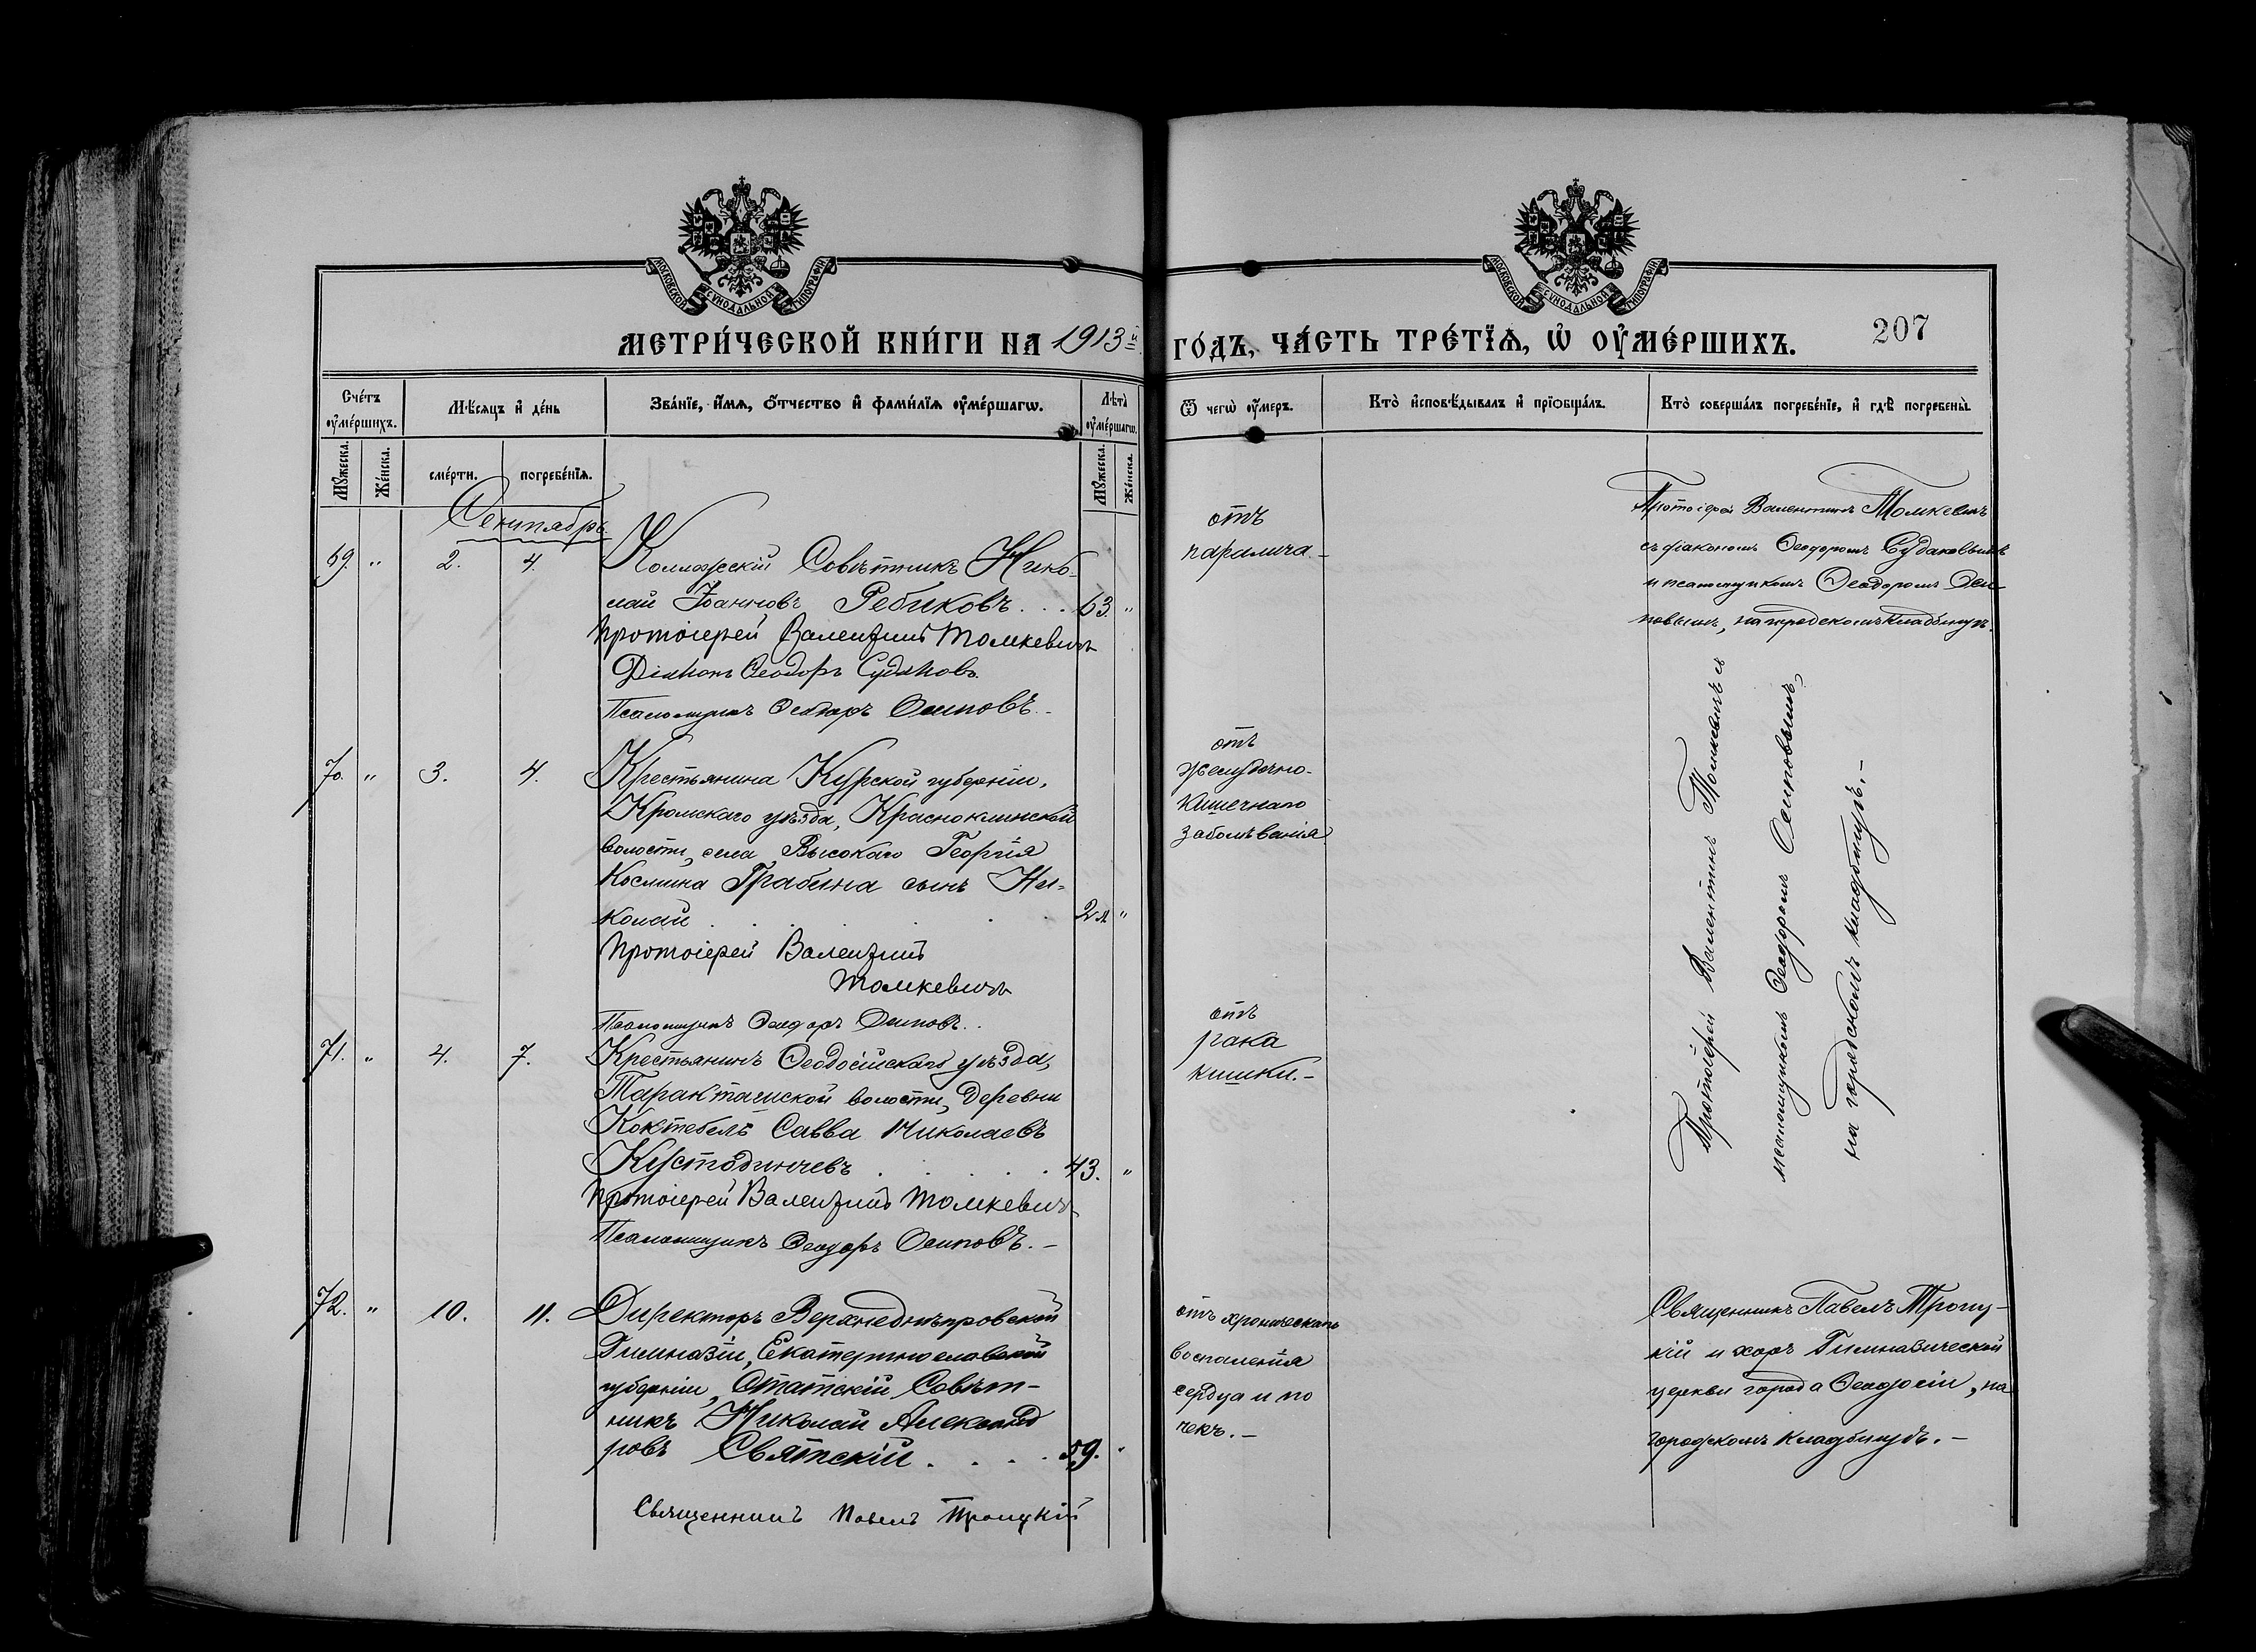 МОСКОВСКОЙ СѴНОДАЛЬНОЙ ТИПОГРАФІИ
МОСКОВСКОЙ СѴНОДАЛЬНОЙ ТИПОГРАФІИ
МЕТРИ́ЧЕСКОЙ КНИ́ГИ НА 1913й
ГО́ДЪ, ЧА́СТЬ ТРЕ́ТЇѦ, Ѽ ОУ҆МЕ́РШИХЪ.
207
Сче́тъ оу҆ме́ршихъ.
Мѣ́сяцъ и҆ де́нь
Зва́нїе, и҆́мѧ, ѻ҆́тчество и҆ фами́лїѧ оу҆ме́ршагѡ.
Лѣ́та оу҆ме́ршагѡ.
Ѿ чегѡ̀ оу҆́меръ.
Кто̀ и҆сповѣ́дывалъ и҆ прїѡбща́лъ.
Кто̀ соверша́лъ погребе́нїе, и҆ гдѣ̀ погребены̀.
Мꙋ́жеска.
Же́нска.
сме́рти.
погребе́нїѧ.
Мꙋ́жеска.
Же́нска.
Сентябрь
69. " 2. 4. Коллежскій Совѣтникъ Нико-
лай Іоанновъ Ребиковъ . . . 63. "
Протоіерей Валентинъ Томкевичъ
Діаконъ Ѳеодоръ Судаковъ
Псаломщикъ Ѳеодоръ Осиповъ.
отъ
паралича.–
Протоіерей Валентинъ Томкевичъ
съ діакономъ Ѳеодоромъ Судаковымъ
и псаломщикомъ Ѳеодоромъ Оси-
повымъ, на городскомъ кладбищѣ.
70. " 3. 4. Крестьянина Курской губерніи,
Кромскаго уѣзда, Красноклинской
волости, села Высокаго Георгія
Космина Грабина сынъ Ни-
колай . . . . . 2 м "
Протоіерей Валентинъ
Томкевичъ
Псаломщикъ Ѳеодоръ Осиповъ..
отъ
желудочно-
кишечнаго
заболѣванія
Протоіерей Валентинъ Томкевичъ съ
псаломщикомъ Ѳеодоромъ Осиповымъ,
на городскомъ кладбищѣ.–
71. " 4. 7. Крестьянинъ Ѳеодосійскаго уѣзда,
Таракташской волости, деревни
Коктебель Савва Николаевъ
Кустодинчевъ . . . . . 43. "
Протоіерей Валентинъ Томкевичъ
Псаломщикъ Ѳеодоръ Осиповъ.–
отъ
рака
кишки.–
72. " 10. 11. Директоръ Верхнеднѣпровской
Гимназіи, Екатеринославской
губерніи, Статскій Совѣт-
никъ Николай Александ
ровъ Святскій . . . . 59. "
Священникъ Павелъ Троицкій
отъ хроническаго
воспаленія
сердца и по
чекъ.–
Священникъ Павелъ Троиц-
кій и хоръ Гимназической
церкви города Ѳеодосіи, на
городскомъ кладбищѣ.–